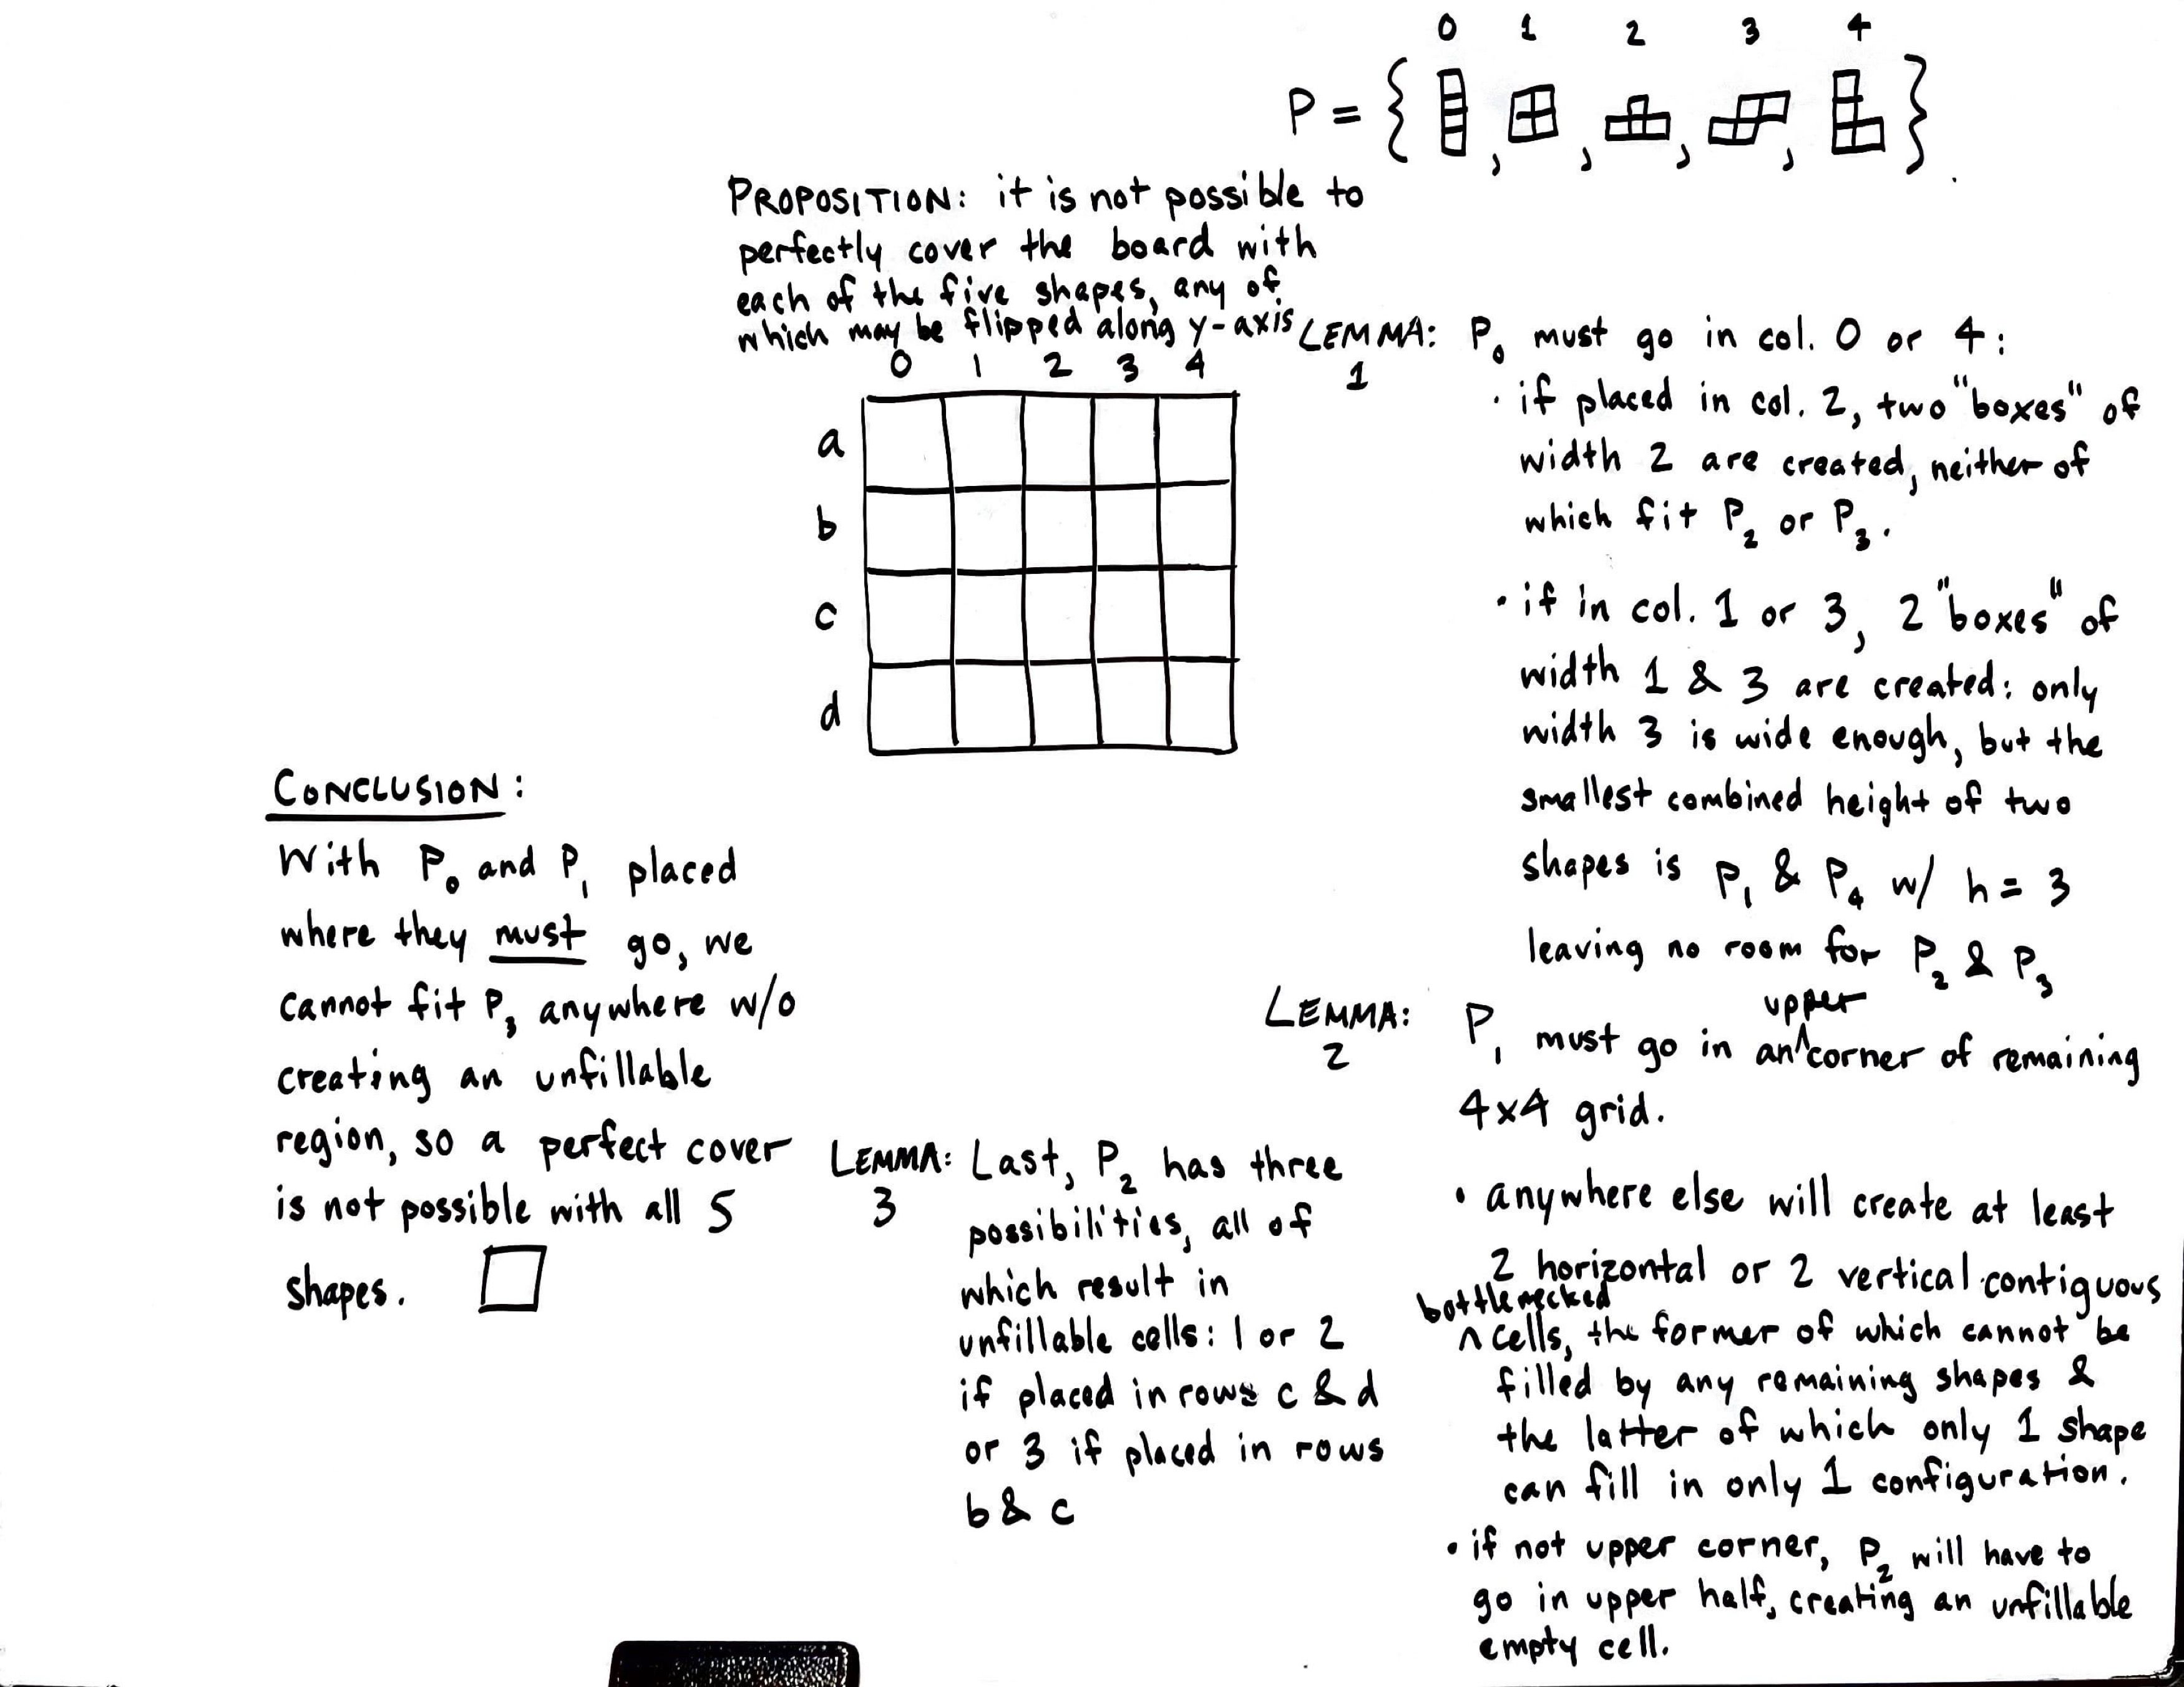 0 1 2 3 4
P = { , , , , } .
PROPOSITION: it is not possible to
perfectly cover the board with
each of the five shapes, any of
which may be flipped along y-axis
0 1 2 3 4
a
b
c
d
LEMMA: P₀ must go in col. 0 or 4:
1
• if placed in col. 2, two "boxes" of
width 2 are created, neither of
which fit P₂ or P₃.
• if in col. 1 or 3, 2 "boxes" of
width 1 & 3 are created: only
width 3 is wide enough, but the
smallest combined height of two
shapes is P₁ & P₄ w/ h = 3
leaving no room for P₂ & P₃
LEMMA: P₁ must go in an ^upper corner of remaining
2
4x4 grid.
• anywhere else will create at least
2 horizontal or 2 vertical contiguous
bottlenecked
^ cells, the former of which cannot be
filled by any remaining shapes &
the latter of which only 1 shape
can fill in only 1 configuration.
• if not upper corner, P₂ will have to
go in upper half, creating an unfillable
empty cell.
LEMMA: Last, P₂ has three
3
possibilities, all of
which result in
unfillable cells: 1 or 2
if placed in rows c & d
or 3 if placed in rows
b & c
CONCLUSION:
With P₀ and P₁ placed
where they must go, we
cannot fit P₃ anywhere w/o
creating an unfillable
region, so a perfect cover
is not possible with all 5
shapes.